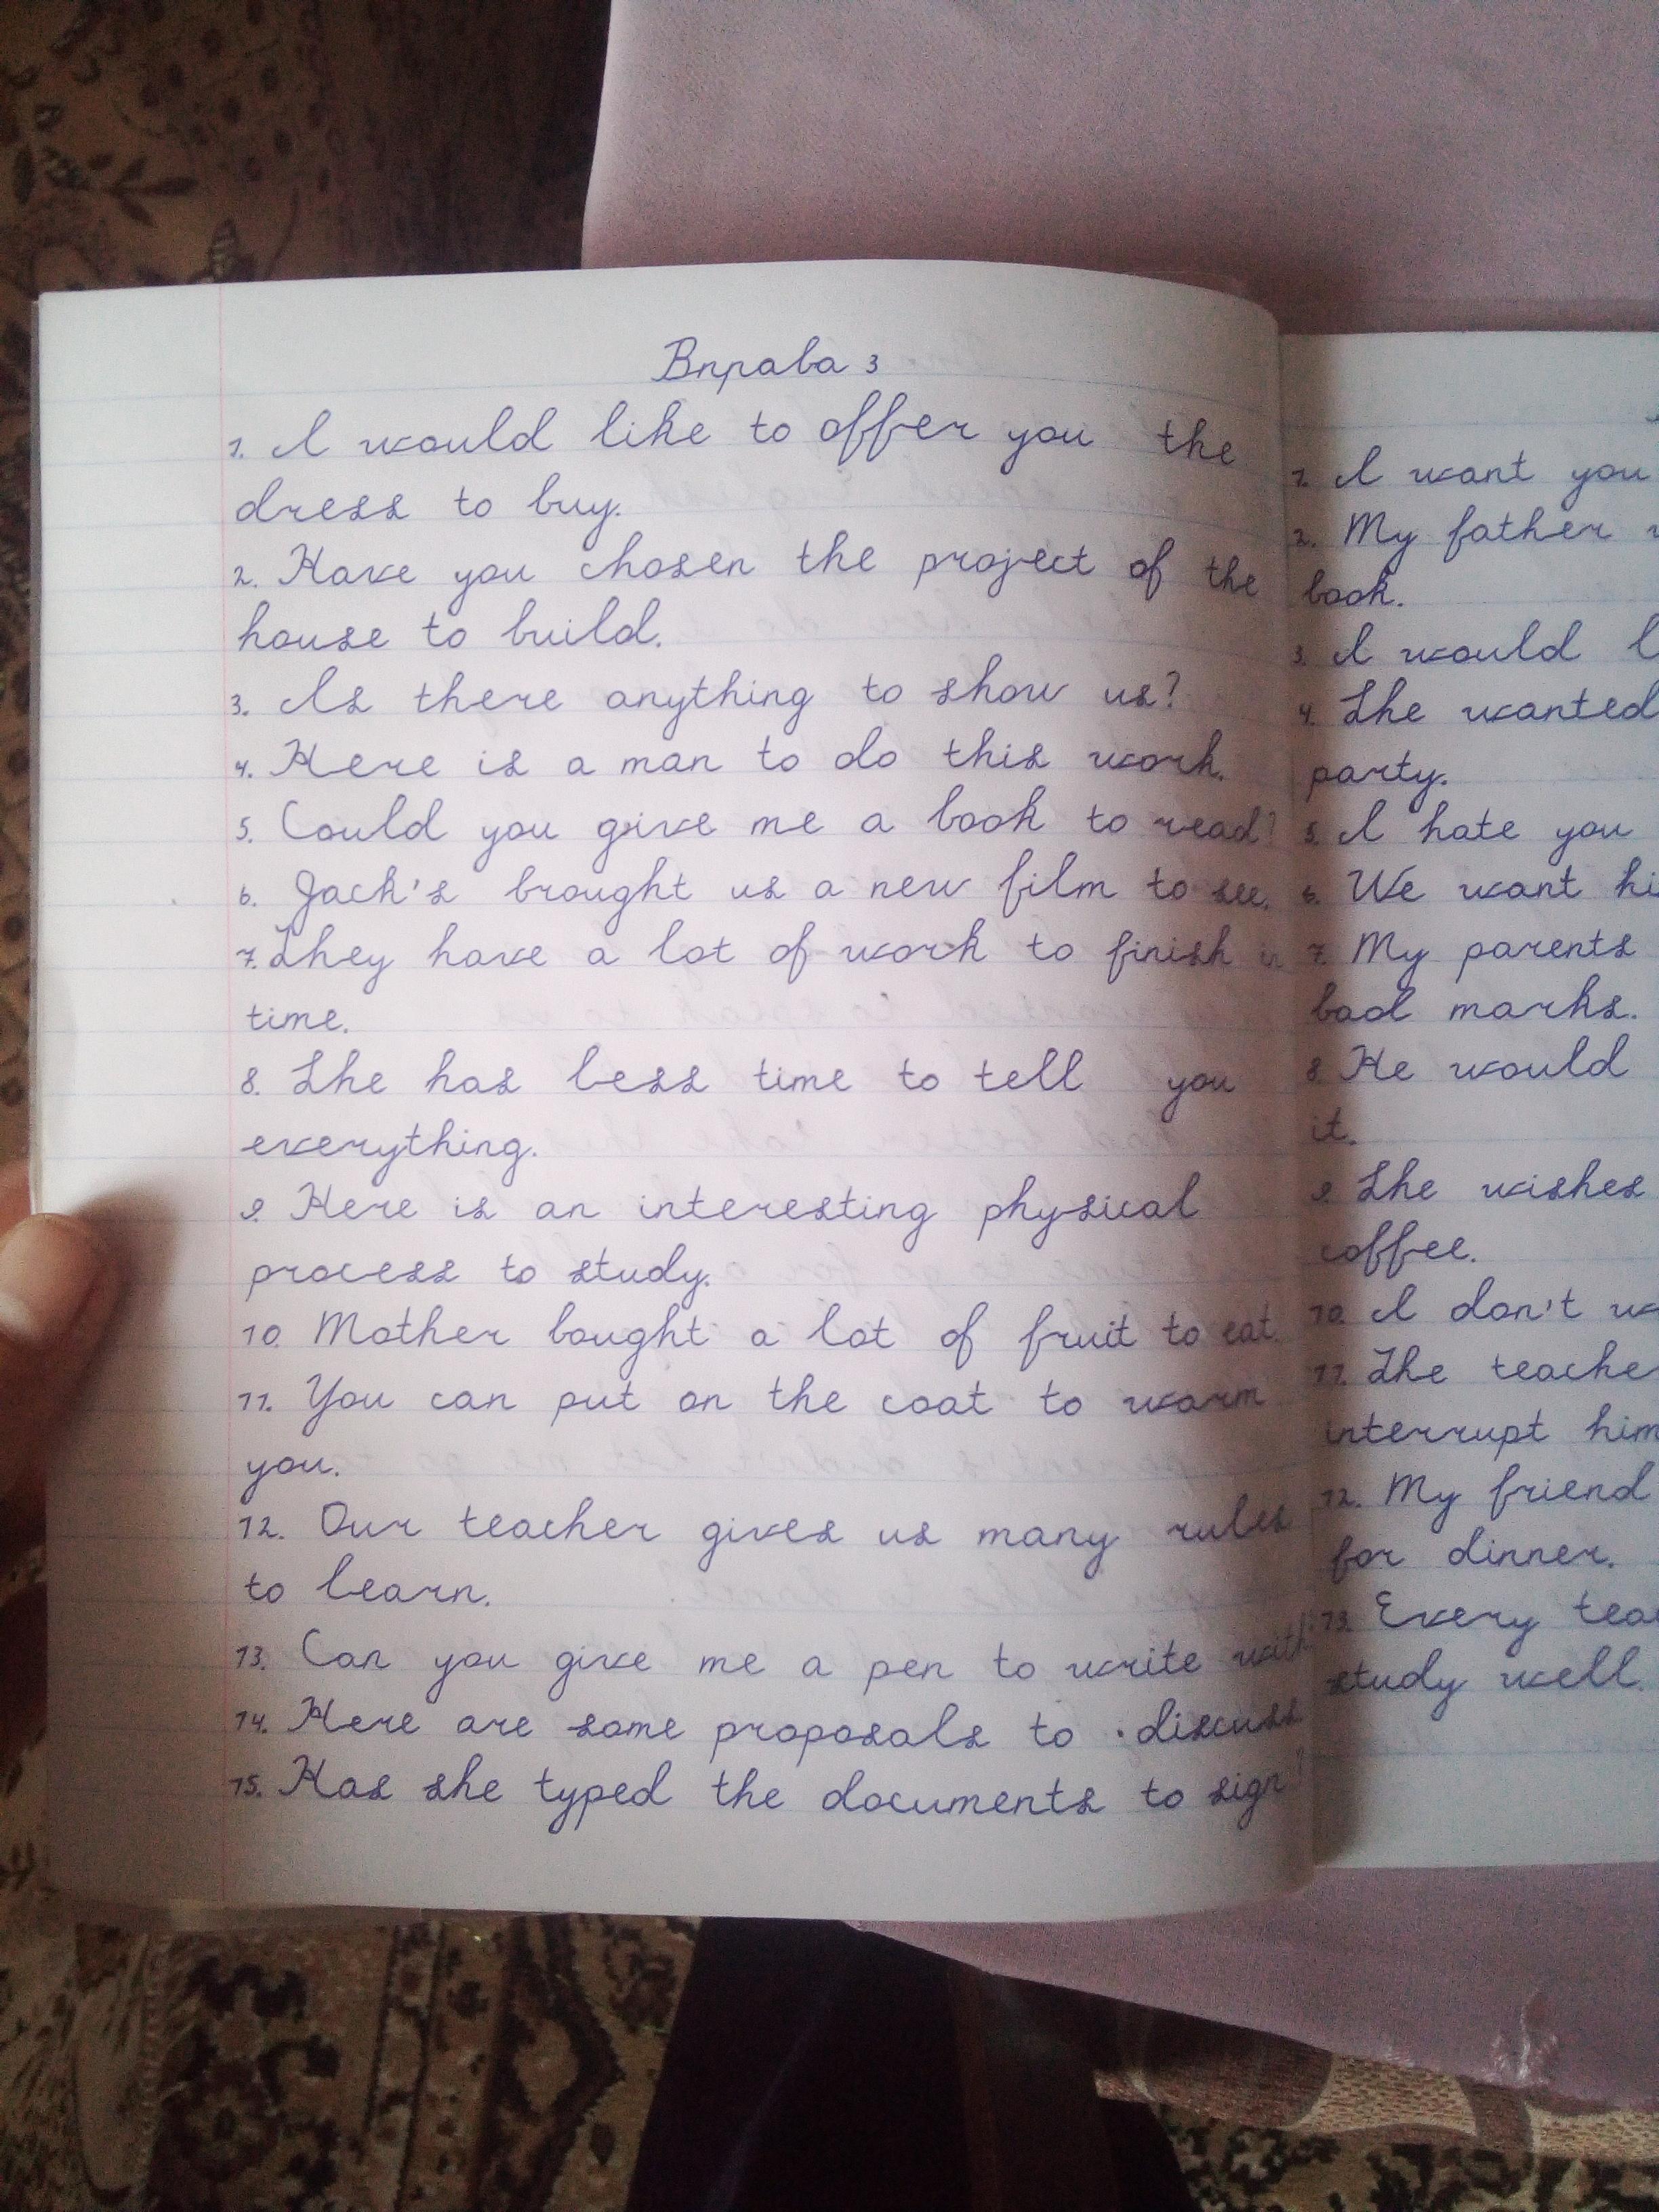 Вправа 3
1. I would like to offer you the
dress to buy.
2. Have you chosen the project of the
house to build.
3. Is there anything to show us?
4. Here is a man to do this work.
5. Could you give me a book to read?
6. Jack's brought us a new film to see.
7. They have a lot of work to finish in
time.
8. She has less time to tell you
everything.
9. Here is an interesting physical
process to study.
10. Mother bought a lot of fruit to eat.
11. You can put on the coat to warm
you.
12. Our teacher gives us many rules
to learn.
13. Can you give me a pen to write with
14. Here are some proposals to discuss
15. Has she typed the documents to sign?
1. I want you
2. My father
book.
3. I would
4. She wanted
party.
5. I hate you
6. We want
7. My parents
bad marks.
8. He would
it.
9. She wishes
coffee.
10. I don't
11. The
interrupt him
12. My friend
for dinner.
13. Every
study well.